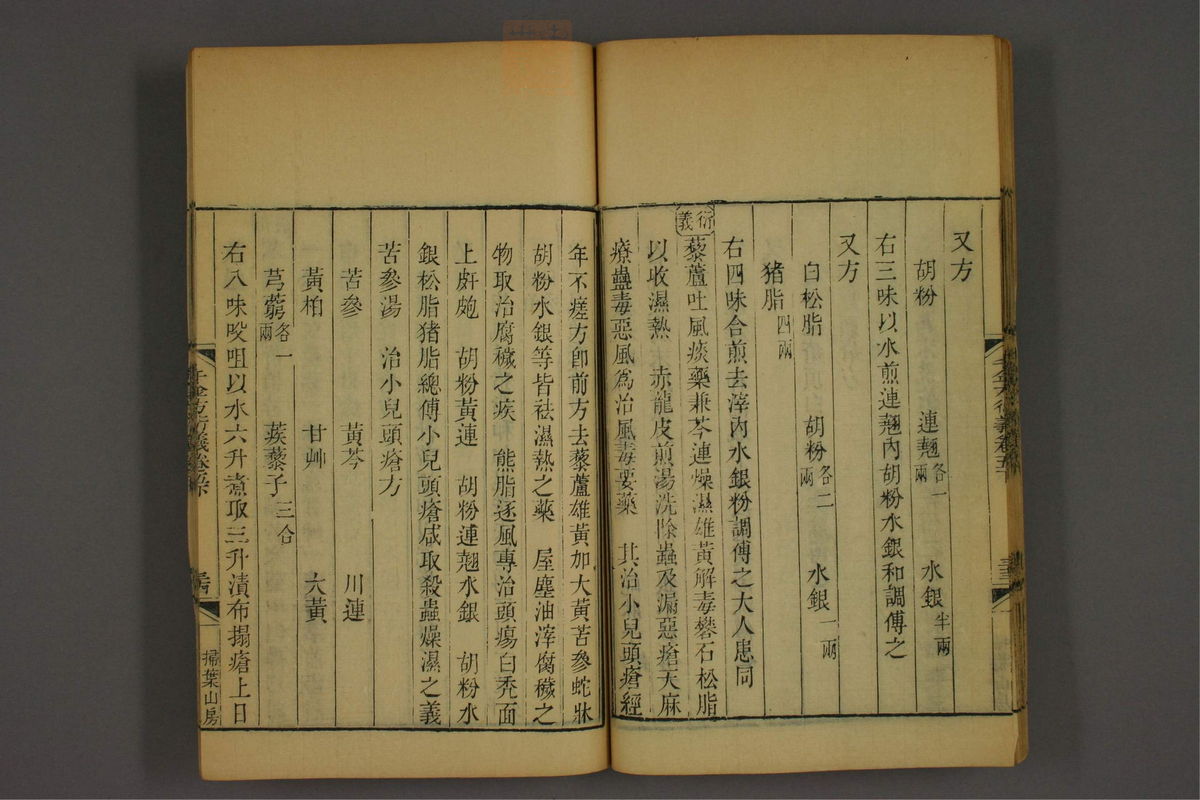 又方
胡粉 連翹各一兩 水銀半兩
右三味以水煎連翹內胡粉水銀和調傅之
又方
白松脂 胡粉各二兩 水銀一兩
猪脂四兩
右四味合煎去滓內水銀粉調傅之大人患同
衍義
藜蘆吐風痰藥兼芩連燥濕雄黃解毒礬石松脂
以收濕熱 赤龍皮煎湯洗除蟲及漏惡瘡天麻
療蠱毒惡風為治風毒要藥 其治小兒頭瘡經
年不瘥方卽前方去藜蘆雄黃加大黃苦參蛇牀
胡粉水銀等皆祛濕熱之藥 屋塵油滓腐穢之
物取治腐穢之疾 熊脂逐風專治頭瘍白禿面
上皯皰 胡粉黃連 胡粉連翹水銀 胡粉水
銀松脂猪脂總傅小兒頭瘡咸取殺蟲燥濕之義
苦參湯 治小兒頭瘡方
苦參 黃芩 川連
黃柏 甘艸 大黃
芎藭各一兩 蒺藜子三合
右八味㕮咀以水六升煮取三升漬布搨瘡上日
千金方衍義卷五
掃葉山房